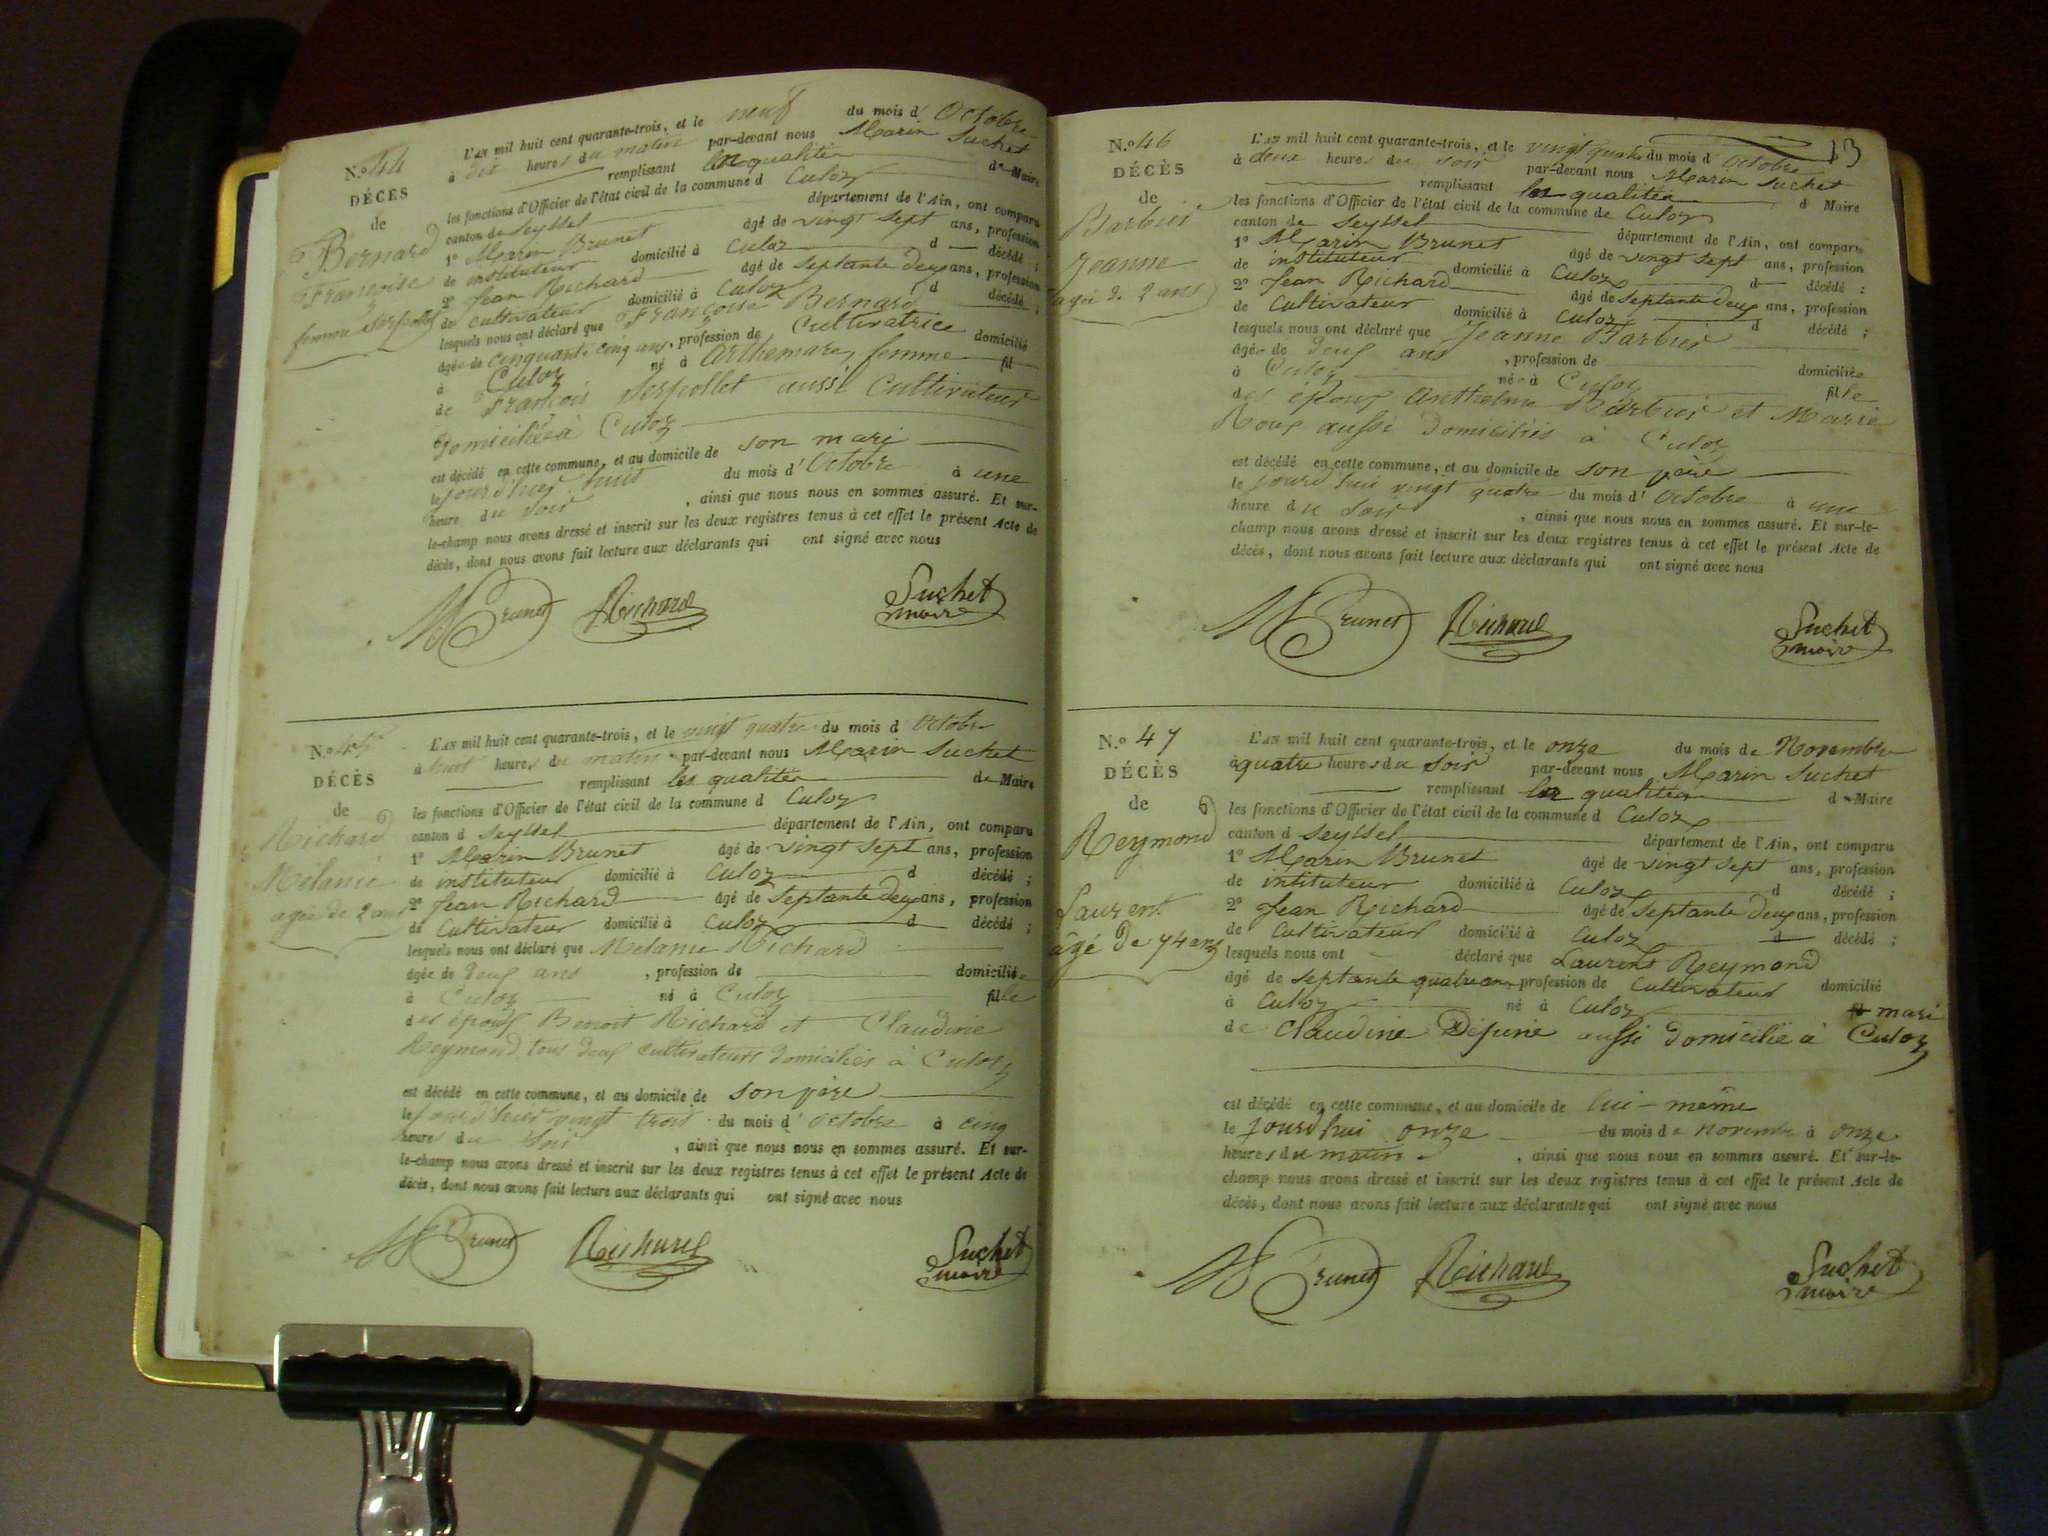 N.º 44
DÉCÈS
de
Bernard
Françoise
femme Serpollet
L'AN mil huit cent quarante-trois, et le neuf du mois d'Octobre
à dix heures du matin par-devant nous Marin Suchet
remplissant les qualités de Maire
les fonctions d'Officier de l'état civil de la commune d Culoz
canton de Seyssel département de l'Ain, ont comparu
1º Marin Brunet âgé de vingt sept ans, profession
de instituteur domicilié à Culoz d décédé ;
2º Jean Richard âgé de septante deux ans, profession
de cultivateur domicilié à Culoz d décédé ;
lesquels nous ont déclaré que Françoise Bernard
âgée de cinquante cinq ans, profession de Cultivatrice domicilié
à Culoz né à Arthemare, femme fil
de François Serpollet aussi Cultivateur
Domiciliée à Culoz
est décédé en cette commune, et au domicile de son mari
le jourd'hier huit du mois d'Octobre à une
heure du soir , ainsi que nous nous en sommes assuré. Et sur-
le-champ nous avons dressé et inscrit sur les deux registres tenus à cet effet le présent Acte de
décès, dont nous avons fait lecture aux déclarants qui ont signé avec nous
M Brunet Richard Suchet
maire
N.º 45
DÉCÈS
de
Richard
Mélanie
agée de 2 ans
L'AN mil huit cent quarante-trois, et le vingt quatre du mois d Octobre
à huit heures du matin par-devant nous Marin Suchet
remplissant les qualités de Maire
les fonctions d'Officier de l'état civil de la commune d Culoz
canton d Seyssel département de l'Ain, ont comparu
1º Marin Brunet âgé de vingt sept ans, profession
de instituteur domicilié à Culoz d décédé ;
2º Jean Richard âgé de septante deux ans, profession
de Cultivateur domicilié à Culoz d décédé ;
lesquels nous ont déclaré que Mélanie Richard
âgée de deux ans , profession de domiciliée
à Culoz né à Culoz fille
des époux Benoit Richard et Claudine
Reymond, tous deux cultivateurs domiciliés à Culoz
est décédé en cette commune, et au domicile de son père
le jourd'hier vingt trois du mois d'octobre à cinq
heures du soir , ainsi que nous nous en sommes assuré. Et sur-
le-champ nous avons dressé et inscrit sur les deux registres tenus à cet effet le présent Acte de
décès, dont nous avons fait lecture aux déclarants qui ont signé avec nous
M Brunet Richard Suchet
maire
13
N.º 46
DÉCÈS
de
Barbier
Jeanne
agée de 2 ans
L'AN mil huit cent quarante-trois, et le vingt quatre du mois d'Octobre
à deux heures du soir par-devant nous Marin Suchet
remplissant les qualités d Maire
les fonctions d'Officier de l'état civil de la commune de Culoz
canton de Seyssel département de l'Ain, ont comparu
1º Marin Brunet âgé de vingt sept ans, profession
de instituteur domicilié à Culoz d décédé ;
2º Jean Richard âgé de septante deux ans, profession
de Cultivateur domicilié à Culoz d décédé ;
lesquels nous ont déclaré que Jeanne Barbier
âgée de deux ans , profession de domiciliée
à Culoz née à Culoz fille
des époux Anthelme Barbier et Marie
Roux aussi domiciliés à Culoz
est décédé en cette commune, et au domicile de son père
le jourd'hui vingt quatre du mois d'Octobre à une
heure du soir , ainsi que nous nous en sommes assuré. Et sur-le-
champ nous avons dressé et inscrit sur les deux registres tenus à cet effet le présent Acte de
décès, dont nous avons fait lecture aux déclarants qui ont signé avec nous
M Brunet Richard Suchet
maire
N.º 47
DÉCÈS
de
Reymond
Laurent
âgé de 74 ans
L'AN mil huit cent quarante-trois, et le onze du mois de Novembre
à quatre heures du soir par-devant nous Marin Suchet
remplissant les qualités de Maire
les fonctions d'Officier de l'état civil de la commune d Culoz
canton d Seyssel département de l'Ain, ont comparu
1º Marin Brunet âgé de vingt sept ans, profession
de intituteur domicilié à Culoz d décédé ;
2º Jean Richard âgé de septante deux ans, profession
de Cultivateur domicilié à Culoz d décédé ;
lesquels nous ont déclaré que Laurent Reymond
âgé de septante quatre ans profession de Cultivateur domicilié
à Culoz né à Culoz mari
de Claudine Déjurie aussi domiciliée à Culoz
est décédé en cette commune, et au domicile de lui-même
le jourd'hui onze du mois de novembre à onze
heures du matin , ainsi que nous nous en sommes assuré. Et sur-le-
champ nous avons dressé et inscrit sur les deux registres tenus à cet effet le présent Acte de
décès, dont nous avons fait lecture aux déclarants qui ont signé avec nous
M Brunet Richard Suchet
maire